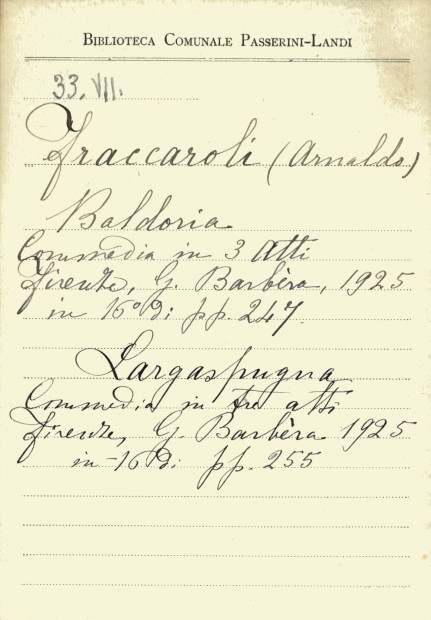 BIBLIOTECA COMUNALE PASSERINI-LANDI
33. VII.
Fraccaroli (Arnaldo)
Baldoria
Commedia in 3 Atti
Firenze, G. Barbèra, 1925
in 16° di pp. 247.
Largaspugna
Commedia in tre atti
Firenze, G. Barbèra 1925
in-16 di pp. 255